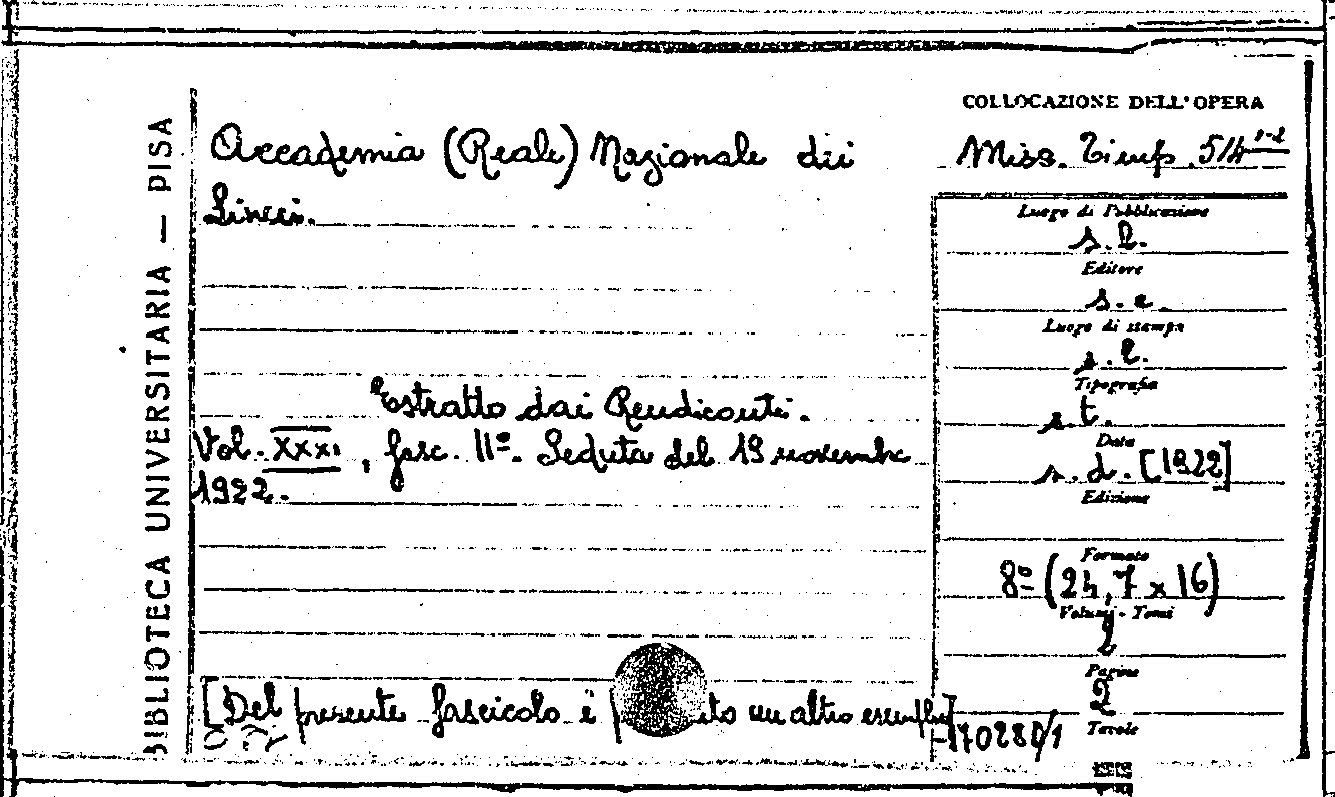 BIBLIOTECA UNIVERSITARIA — PISA
Accademia (Reale) Nazionale dei
Lincei.
Estratto dai Rendiconti.
Vol. XXXI, fasc. 11º. Seduta del 19 novembre
1922.
[Del presente fascicolo è un altro
COLLOCAZIONE DELL'OPERA
Miss. 514 1-2
Luogo di Pubblicazione
s.l.
Editore
s.e
Luogo di stampa
s.l.
Tipografia
s.t.
Data
s.d. [1922]
Edizione
Formato
8º (24,7 x 16)
Volumi - Tomi
Pagine
2
Tavole